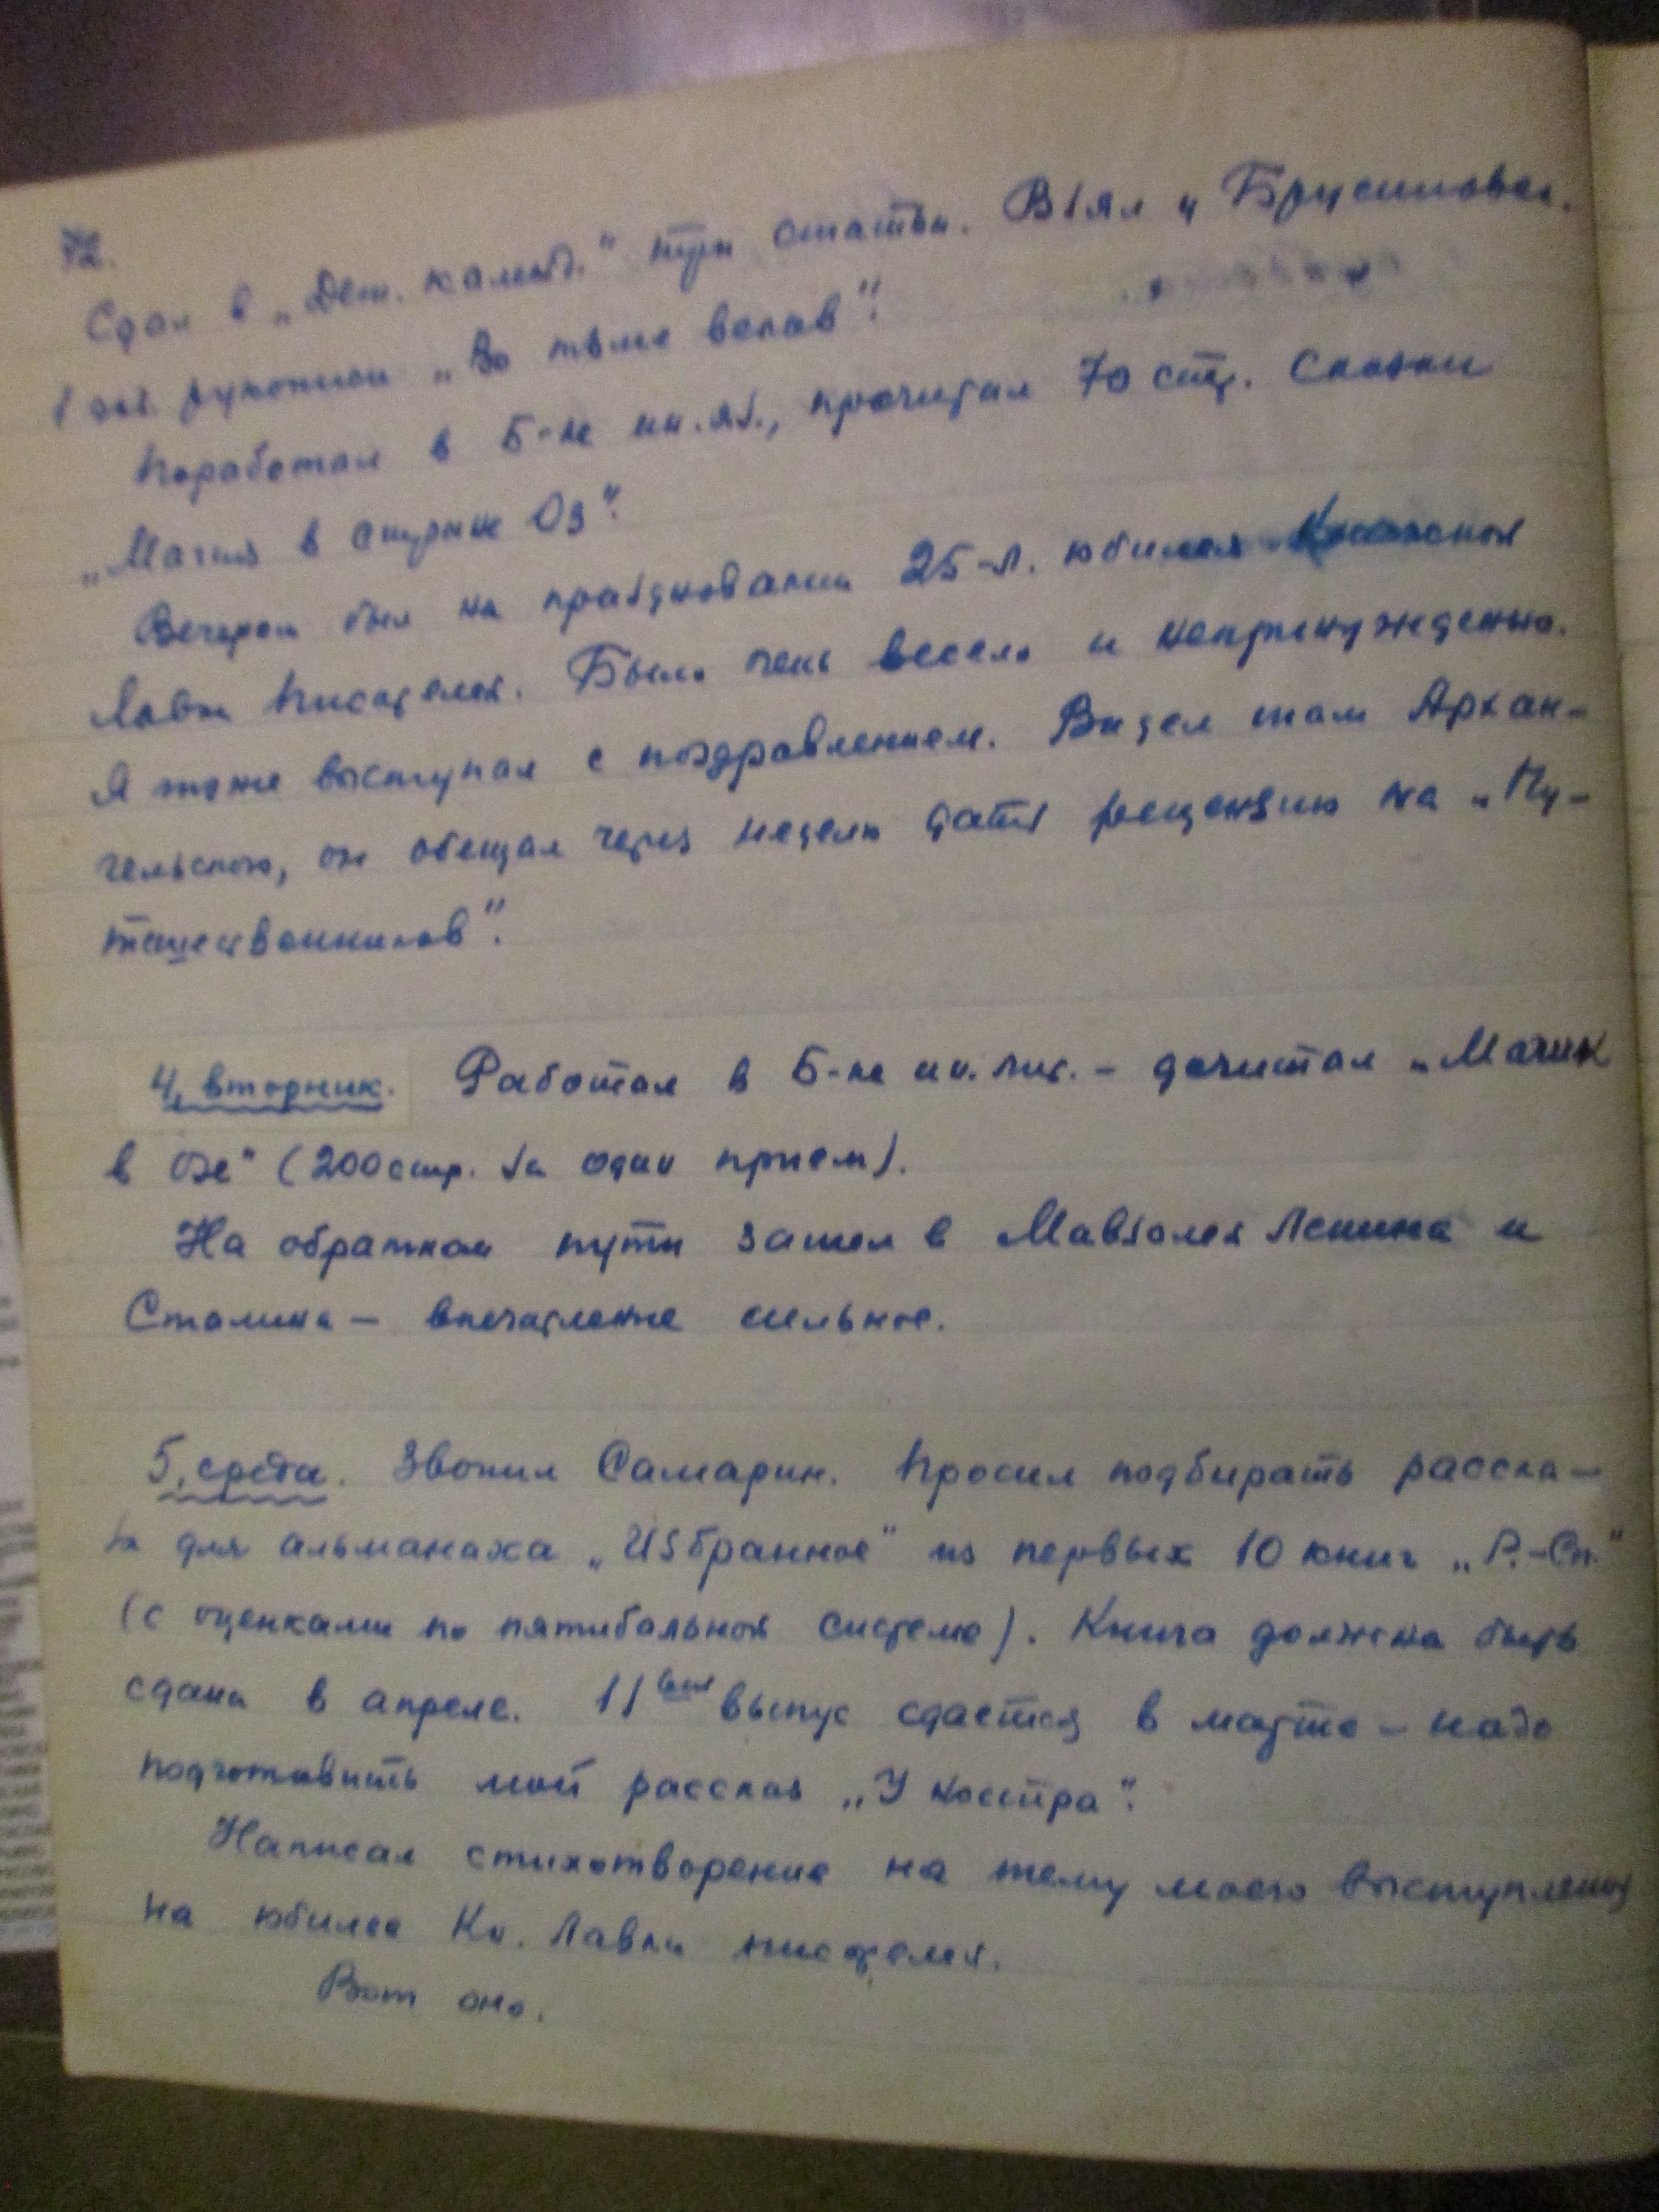 72.
Сдал в „Дет. календ." три статьи. Взял у Брусиловск.
1 экз. рукописи „Во тьме веков".
Поработал в Б-ке ин. яз., прочитал 70 стр. сказки
„Магия в стране Оз".
Вечером был на праздновании 25-л. юбилея Книжной
Лавки Писателей. Было очень весело и непринужденно.
Я тоже выступал с поздравлением. Видел там Архан-
гельского, он обещал через неделю дать рецензию на „Пу-
тешественников".
4, вторник. Работал в Б-ке ин. лит. – дочитал „Магик
в Озе" (200 стр. за один прием).
На обратном пути зашел в Мавзолей Ленина и
Сталина – впечатление сильное.
5, среда. Звонил Самарин. Просил подбирать расска-
зы для альманаха „Избранное" из первых 10 книг „Р.-Сп."
(с оценками по пятибальной системе). Книга должна быть
сдана в апреле. 11 выпус сдается в марте – надо
подготовить мой рассказ „У костра".
Написал стихотворение на тему моего выступления
на юбилее Кн. Лавки писателей.
Вот оно.